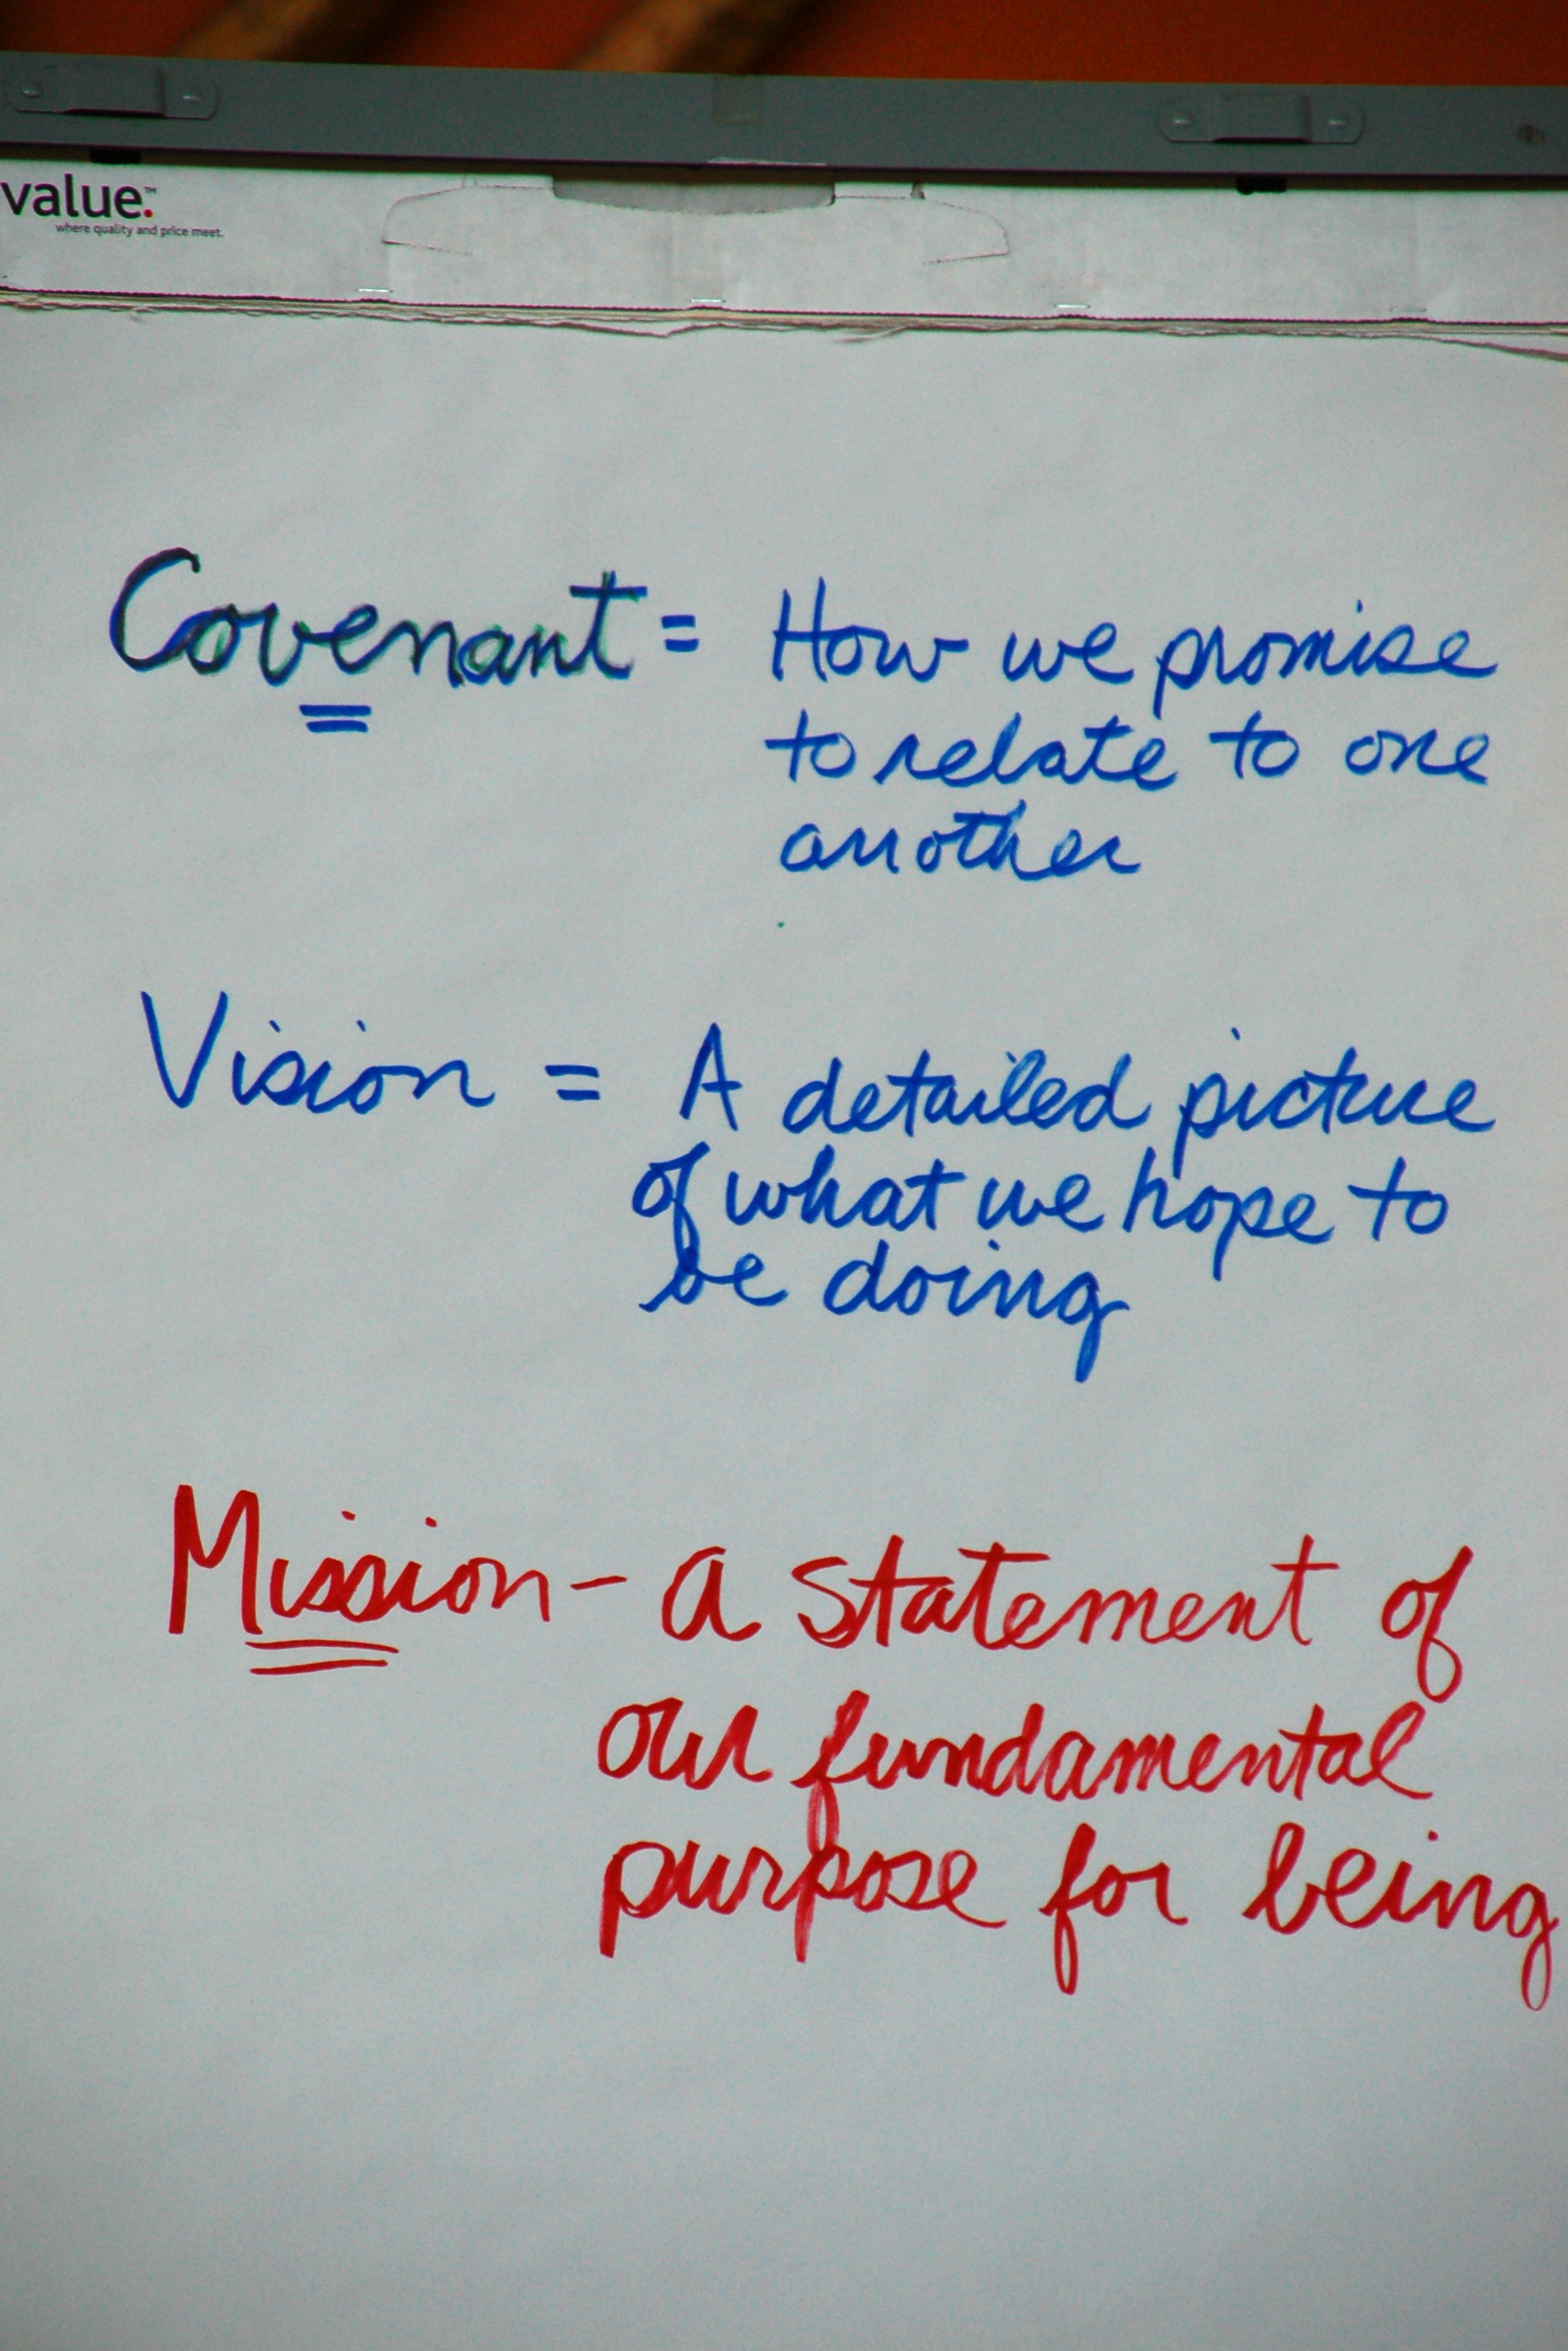 value.™
where quality and price meet.
Covenant = How we promise
to relate to one
another
Vision = A detailed picture
of what we hope to
be doing
Mission - a statement of
our fundamental
purpose for being